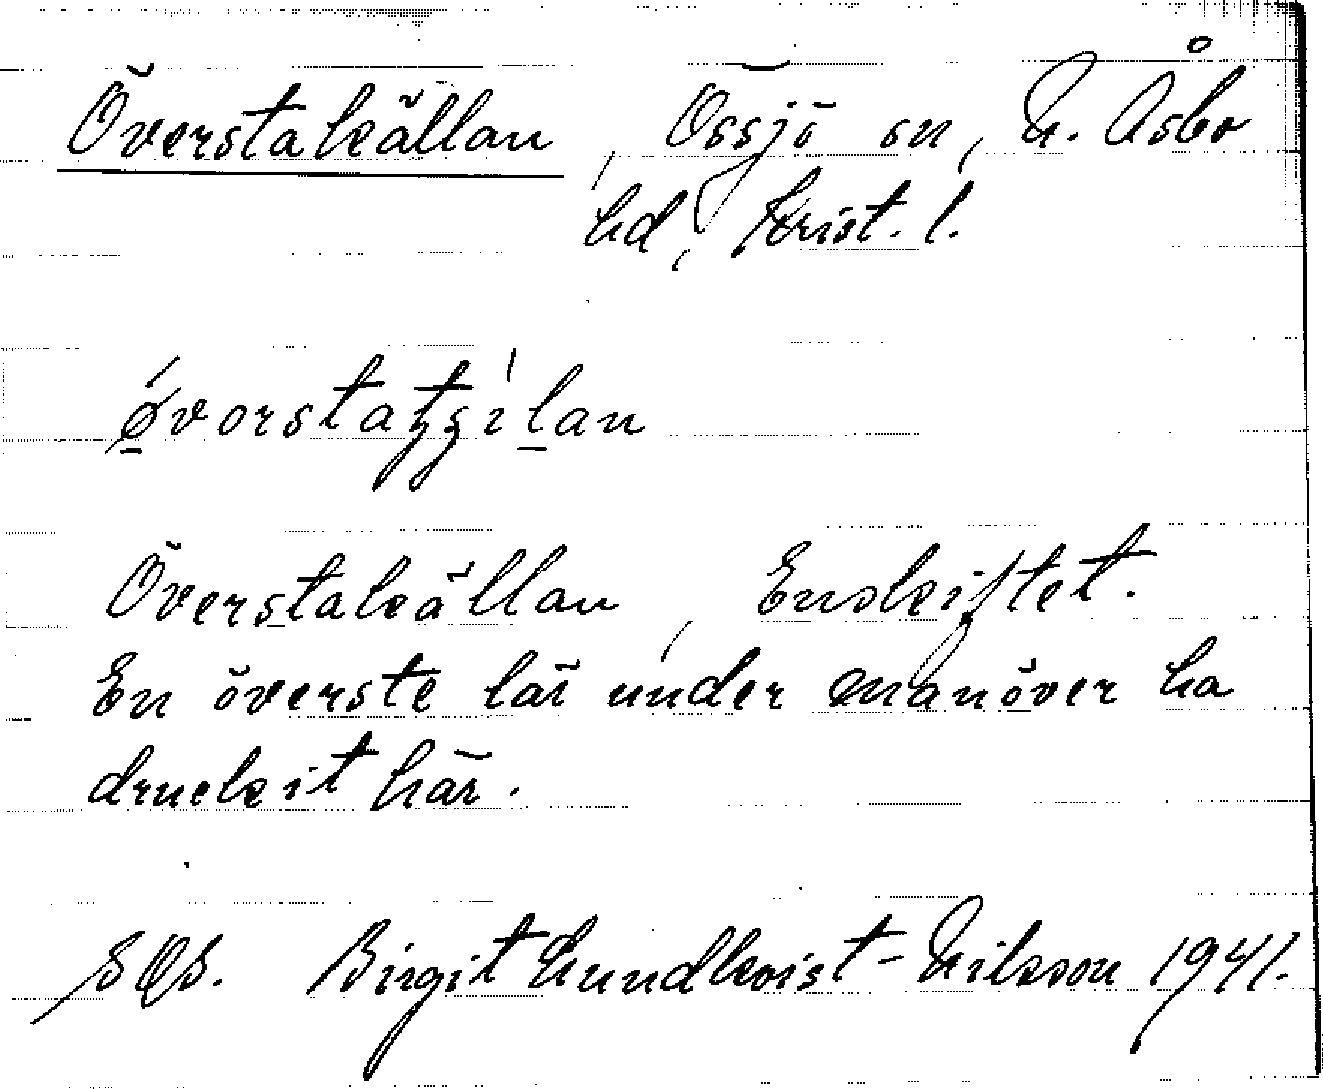 Överstakällan, Össjö sn, N. Åsbo
hd, Krist. l.
ǿvorstatʃílan
Överstakällan, Enskiftet.
En överste lär under manöver ha
druckit här.
Birgit Lundkvist-Nilsson 1941.